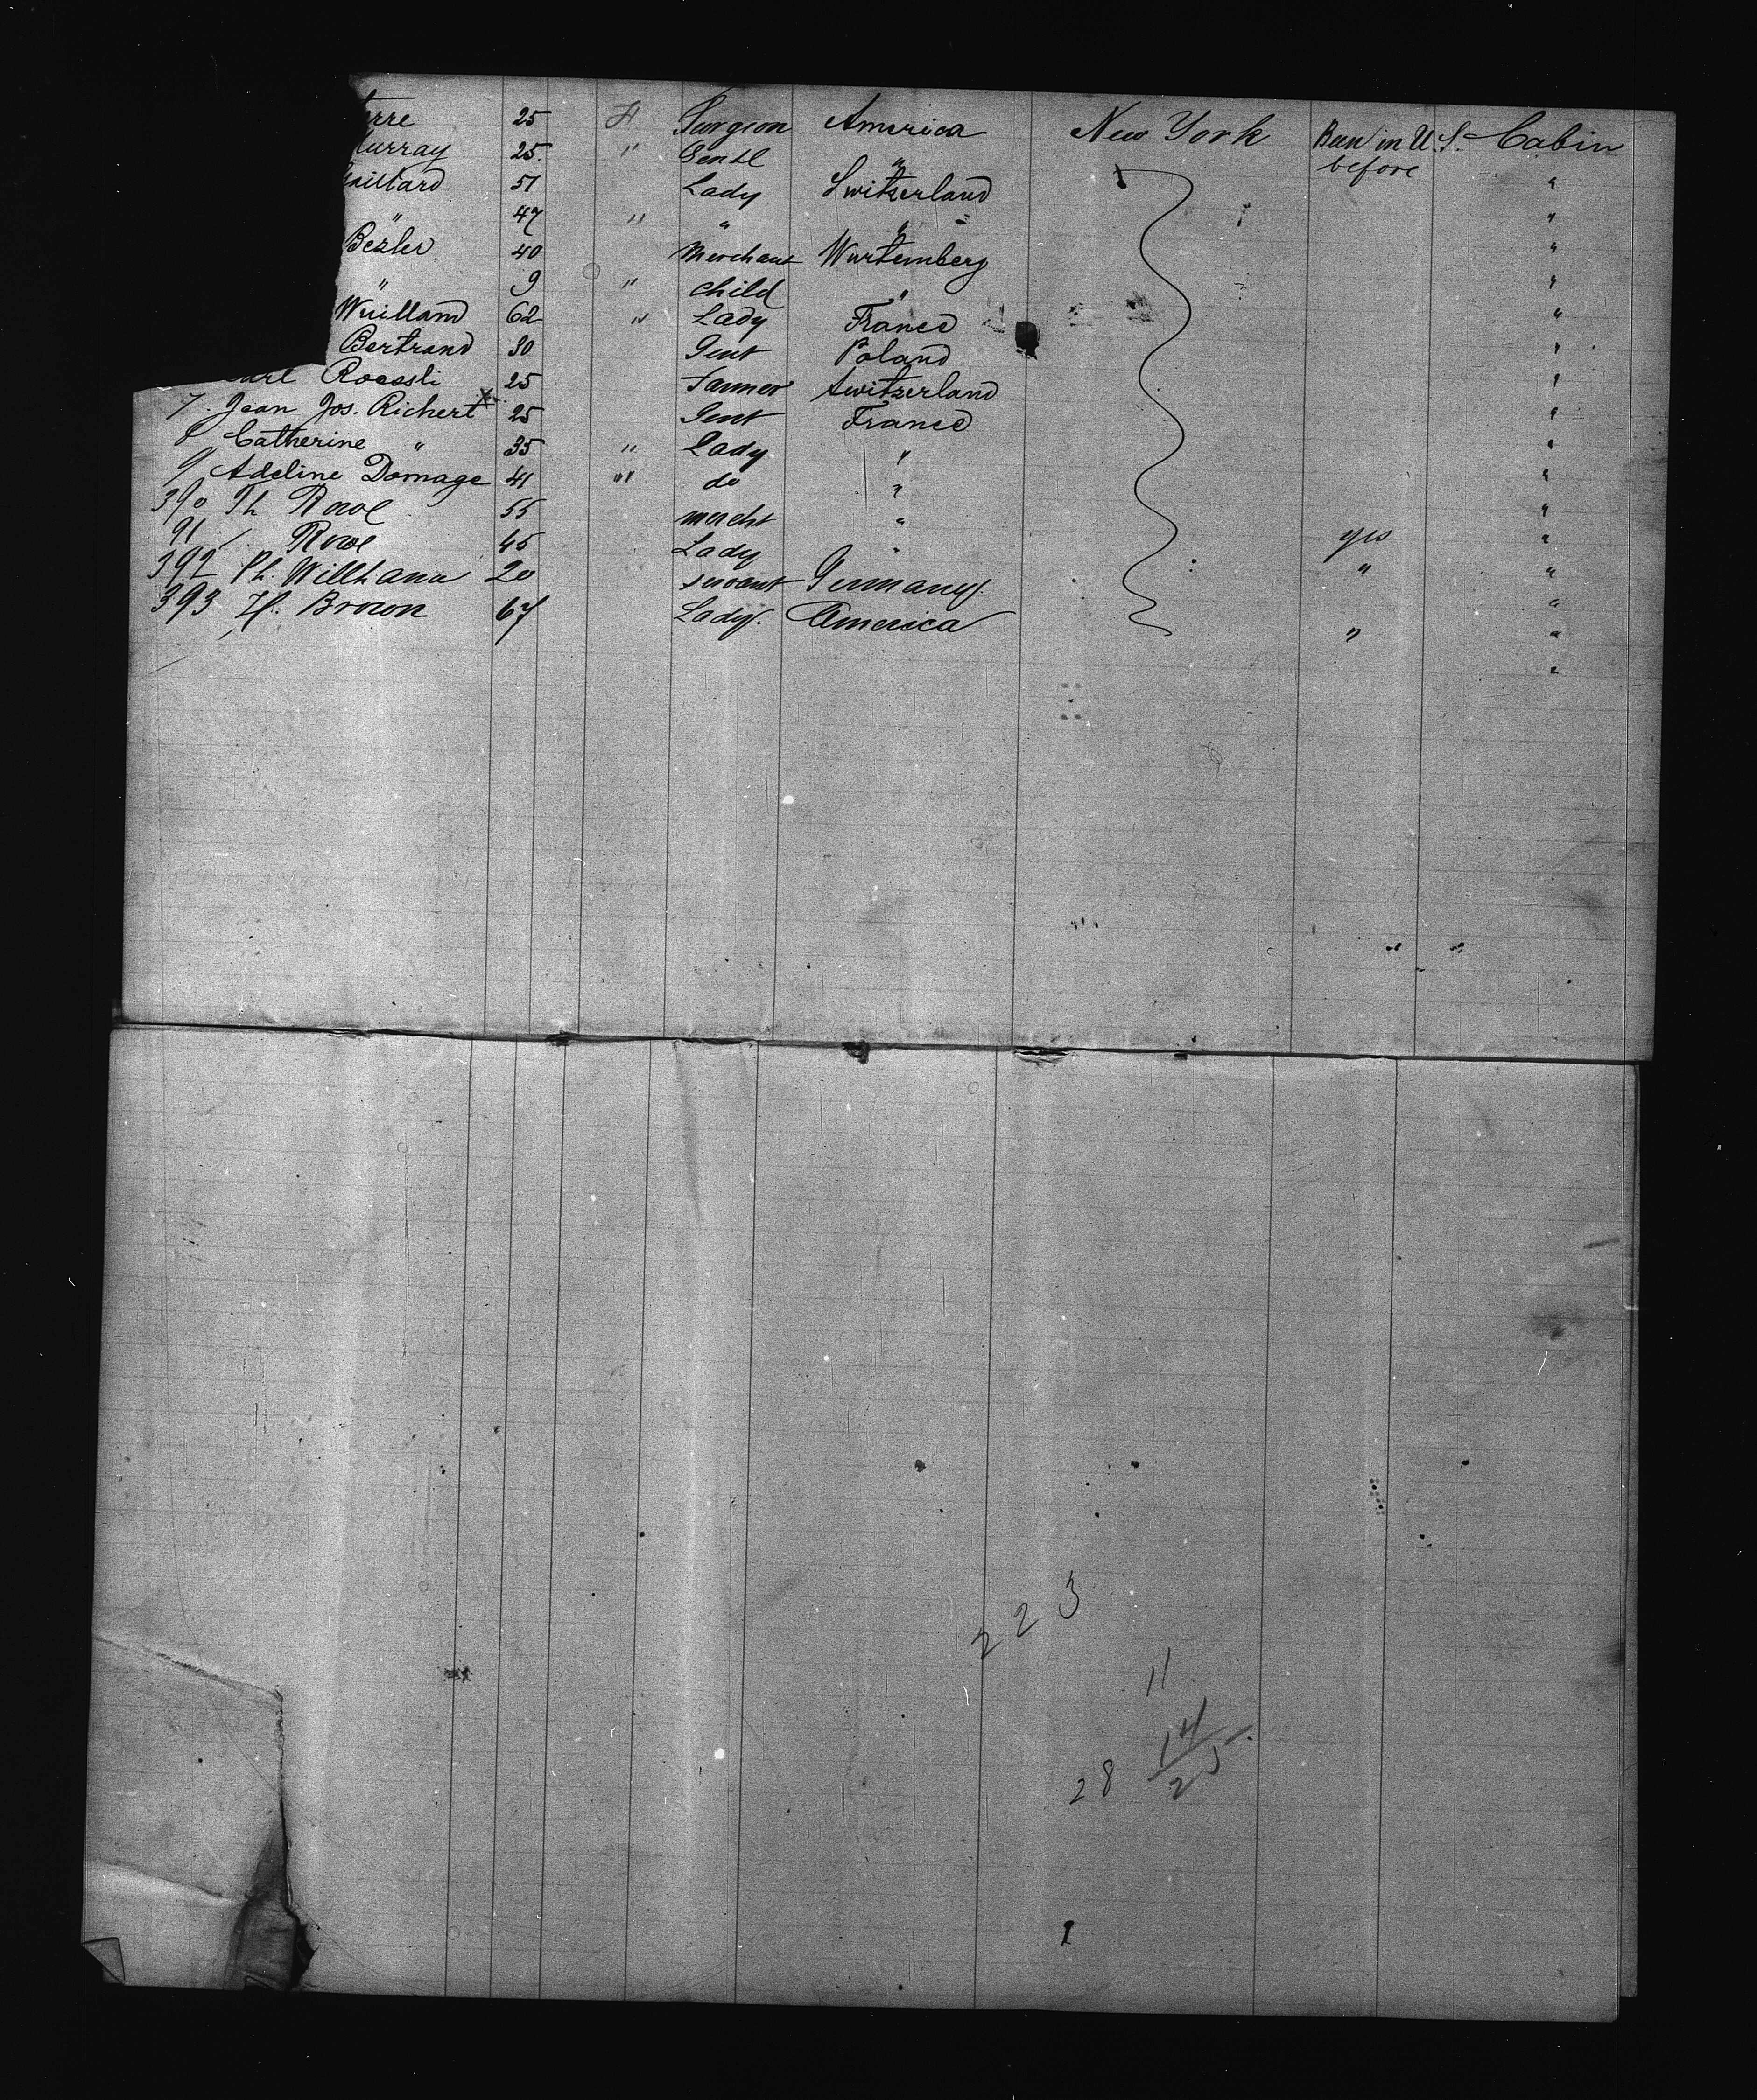 25 F Surgeon America New York Been in U.S. Cabin
urray 25. " Gentl " before "
aillard 51 Lady Switzerland "
" 47 " " " "
Bezler 40 Merchant Wurtemberg "
" 9 " child " "
Wuillam 62 " Lady France "
Bertrand 30 Gent Poland "
Roessli 25 Farmer Switzerland "
7. Jean Jos. Richert x 25 Gent France "
8 Catherine " 35 " Lady " "
9 Adeline Domage 41 " do " "
390 Th 55 mercht " "
91 Rowe 45 Lady " yes "
392 Ph. Willhana 20 servant Germany. " "
393 H. Brown 67 Lady. America " "
"
2 2 3
11
14
28 25